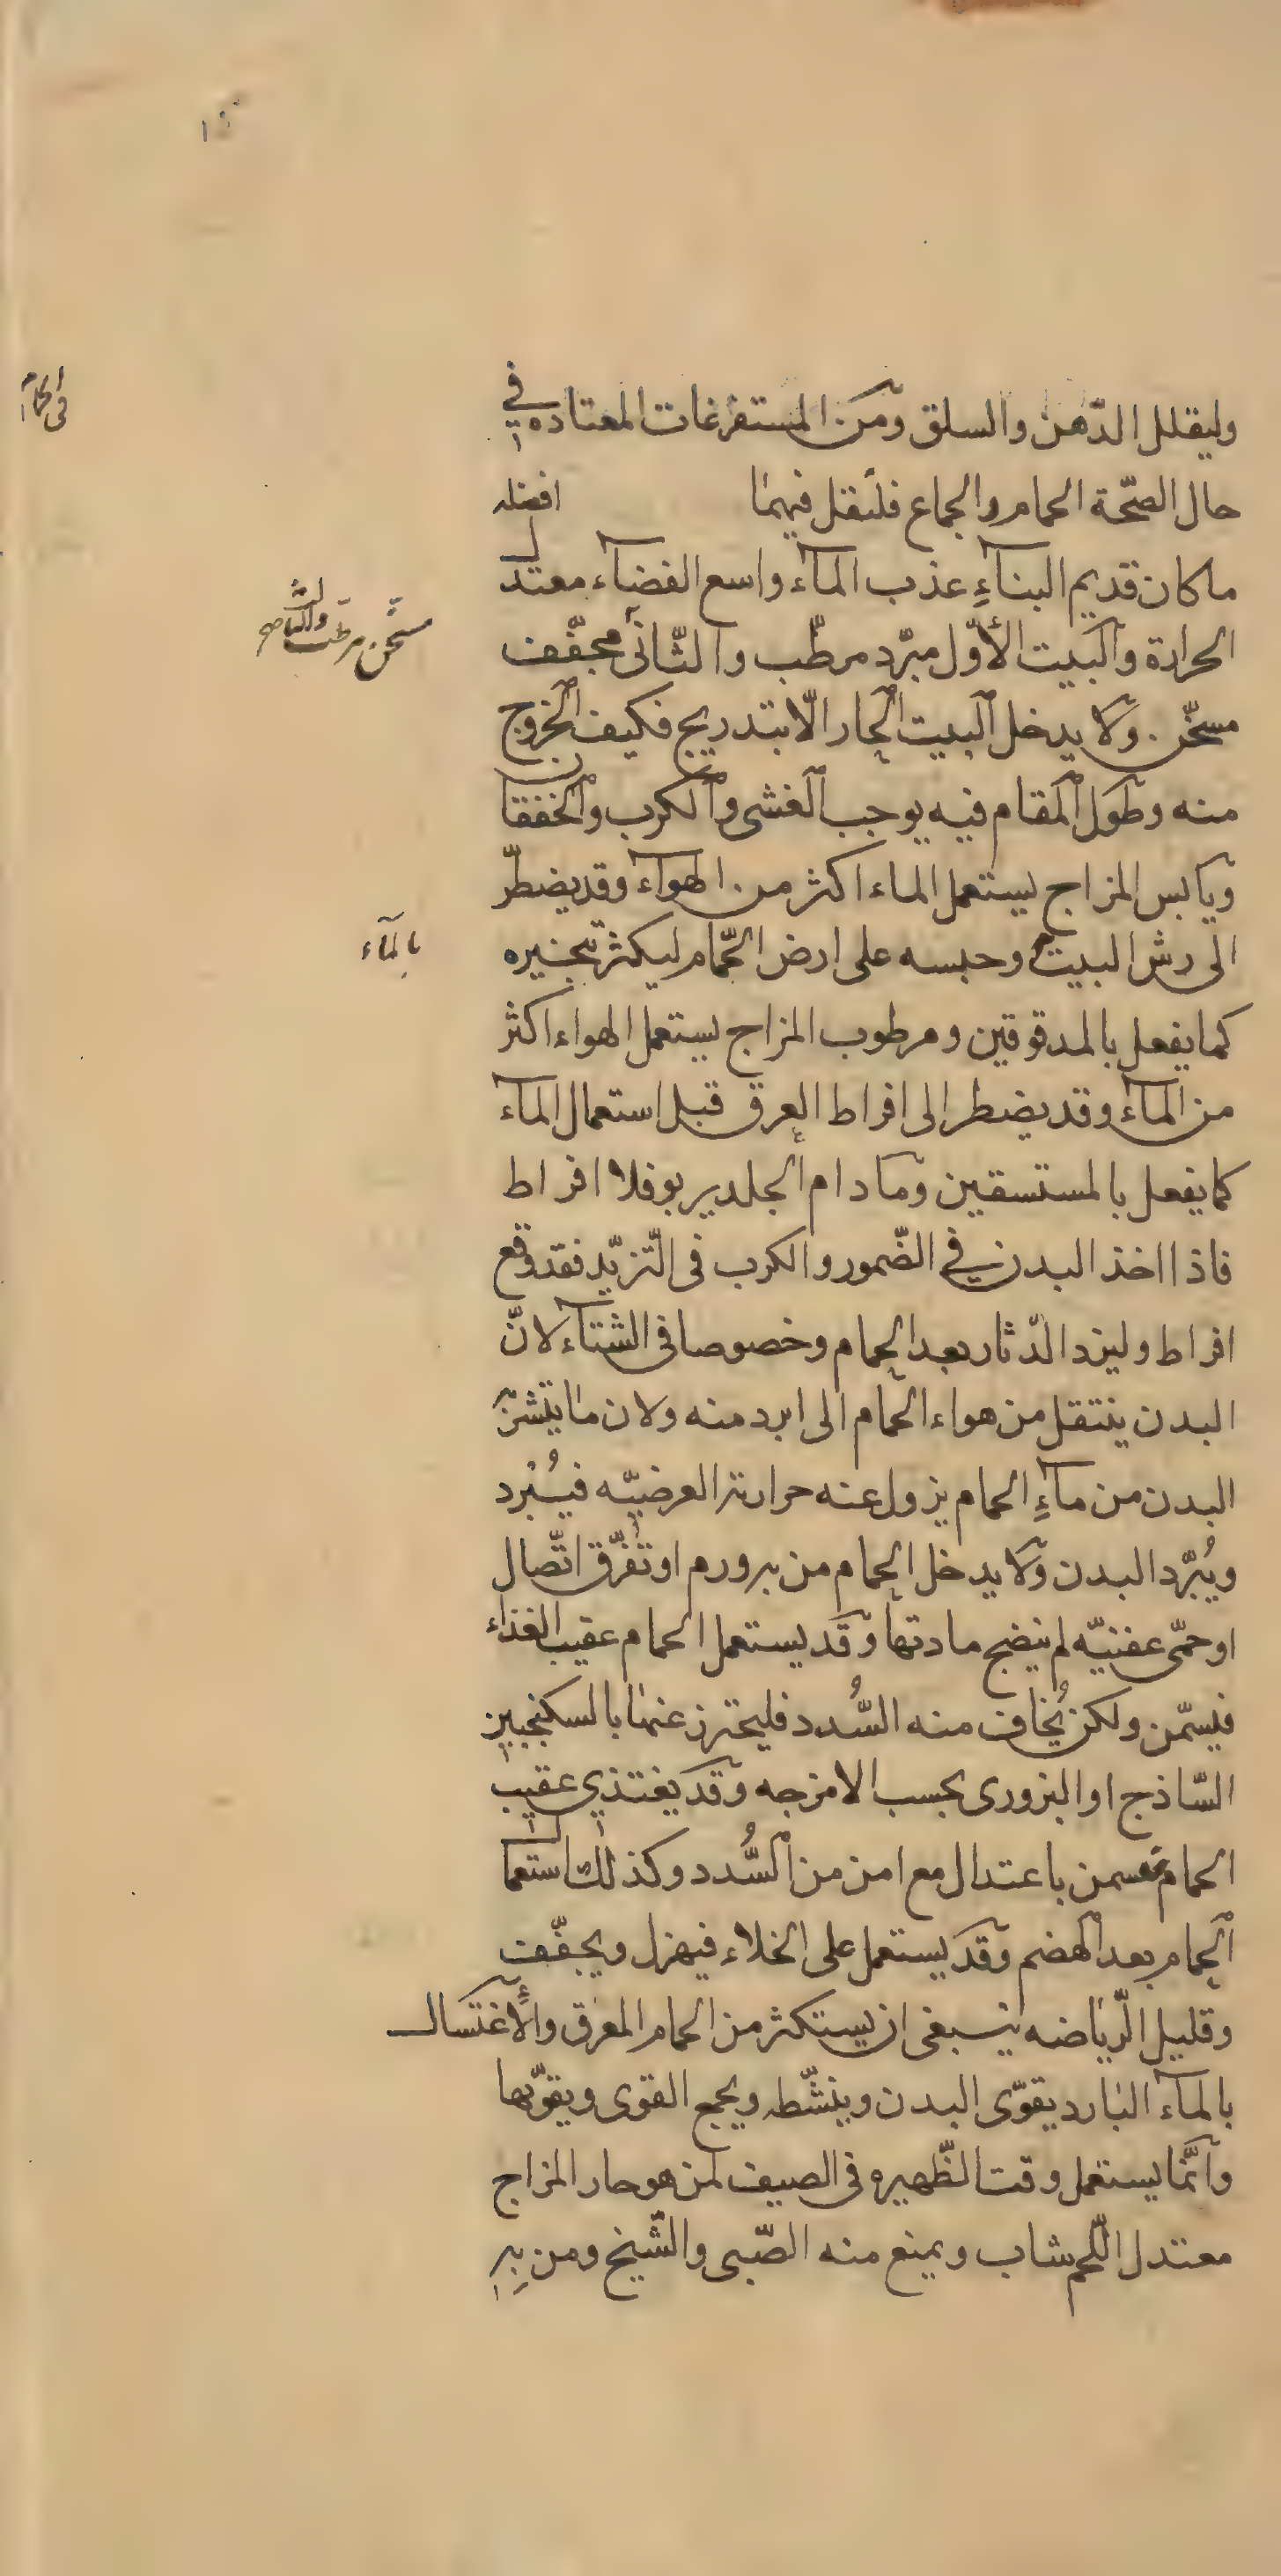 وليقلل الدّهن والسلق ومن المستفرغات المعتاده في
حال الصّحّة الحمام والجماع فلنقل فيهما افضله
ما كان قديم البناءِ عذب المآء واسع الفضآء معتدل
الحرارة والبيت الأوّل مبرّد مرطّب والثّانى مجفّف
مسخّن مرطّب والثالث
مسخّن . ولا يدخل البيت الحار الّا بتدريج فكيف الخروج
منه وطول المقام فيه يوجب الغشى والكرب والخفقان
ويابس المزاج يستعمل الماء اكثر من الهوآء وقد يضطرّ
الى رش البيت وحبسه على ارض الحّمام ليكثر تبخيره
بالمآء
كما يفعل بالمدقوقين ومرطوب المزاج يستعمل الهواء اكثر
من المآء وقد يضطر الى افراط العرق قبل استعمال المآء
كما يفعل بالمستسقين وما دام الجلد يربو فلا افراط
فاذا اخذ البدن في الضّمور والكرب فى التّزيّد فقد وقع
افراط وليزد الدّثار بعد الحمام وخصوصا فى الشتآء لانّ
البدن ينتقل من هواء الحمام الى ابرد منه ولان ما يتشرّ
البدن من مآءِ الحمام يزول عنه حرارته العرضيّه فيُبرد
ويُبرّد البدن ولا يدخل الحمام من به ورم او تفرّق اتّصال
او حمّى عفنيّه لم ينضج مادتها وقد يستعمل الحمام عقيب الغذاء
فيسمّن ولكن يُخاف منه السُّدد فليحترز عنها بالسكنجبين
السّاذج او البزورى بحسب الامزجه وقد يغتذي عقيب
الحمام فيسمن باعتدال مع امن من السُّدد وكذلك استعمال
الحمام بعد الهضم وقد يستعمل على الخلاء فيهزل ويجفّف
وقليل الرّياضه ينبغى ان يستكثر من الحمام المعرق والأغتسال
بالمآء البارد يقوّى البدن وينشّطه ويجمع القوى ويقوّيها
وانّما يستعمل وقت الظّهيره فى الصيف لمن هو حار المزاج
معتدل اللّحم شاب ويمنع منه الصّبى والشّيخ ومن بِهِ
فى الحمام